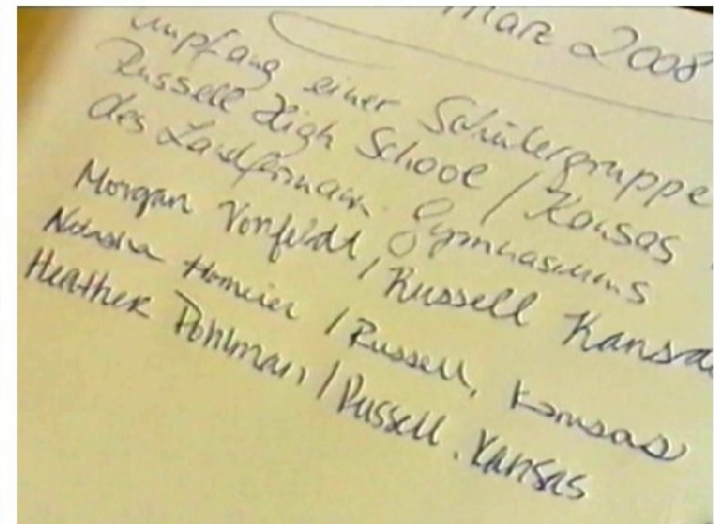 März 2008
Empfang einer Schülergruppe
Russell High School / Kansas
des Gymnasiums
Morgan Vonfeldt / Russell Kansas
Natasha Homeier / Russell, Kansas
Heather Pohlman / Russell, Kansas